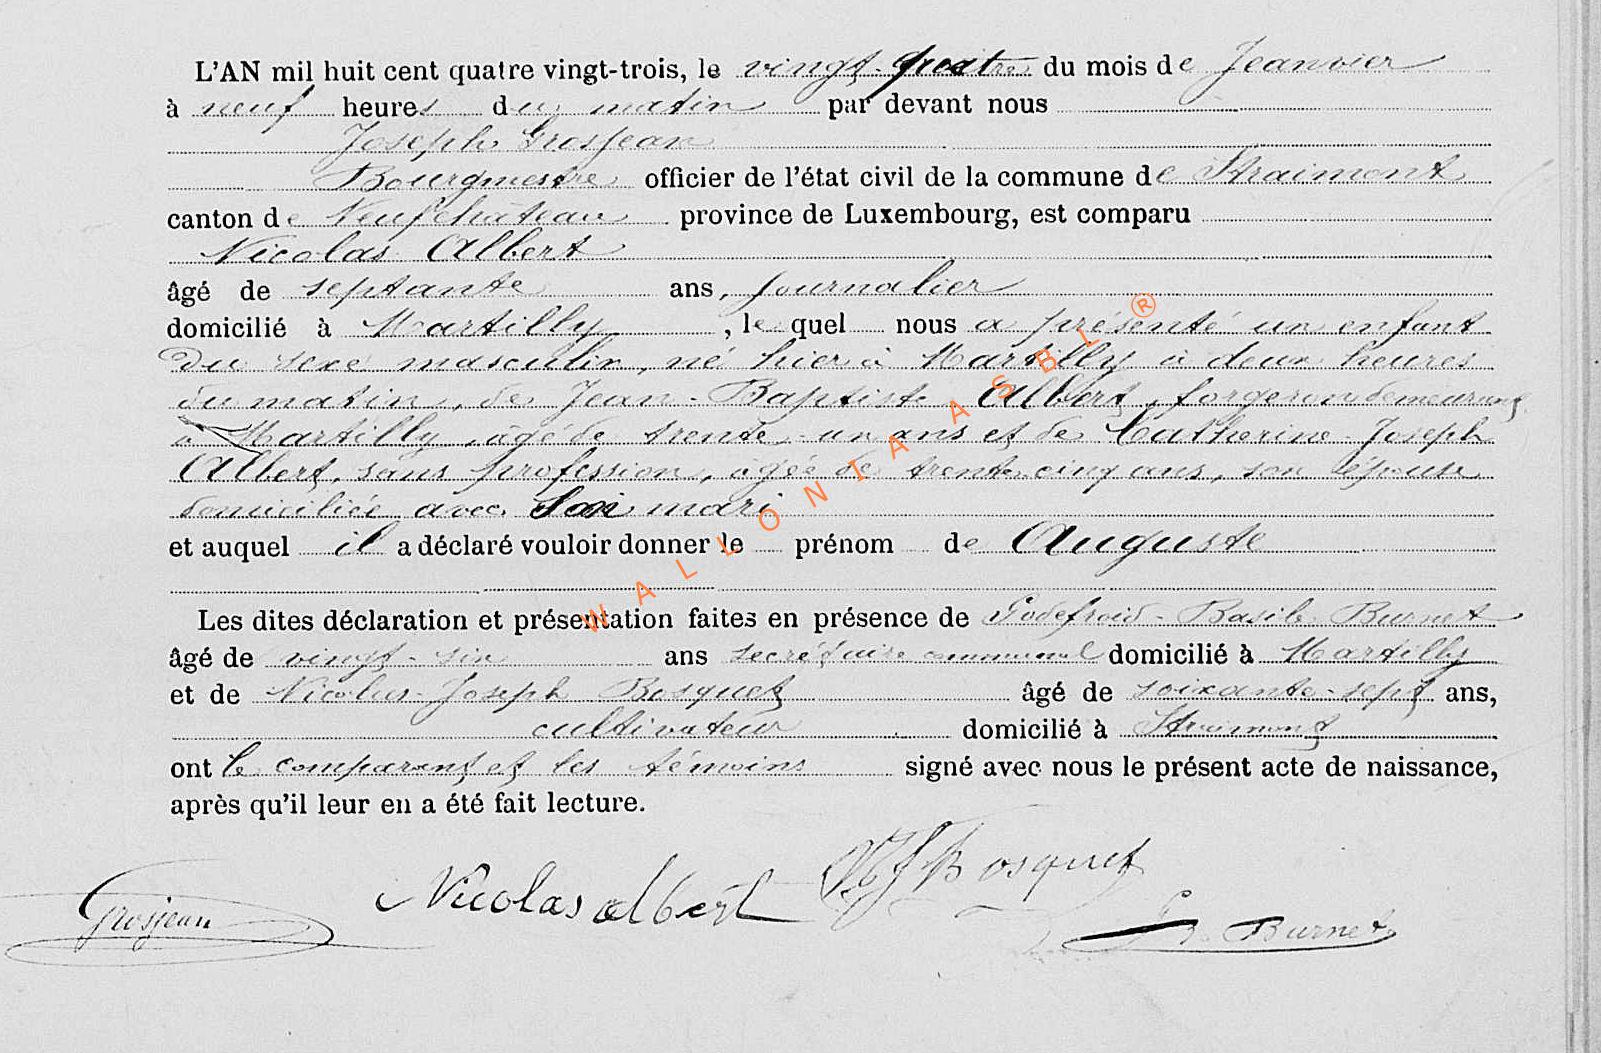 L'AN mil huit cent quatre vingt-trois, le vingt-quatre du mois de Jeanvier
à neuf heures du matin par devant nous
Joseph Grosjean
Bourgmestre officier de l'état civil de la commune de Straimont
canton de Neufchâteau province de Luxembourg, est comparu
Nicolas Albert
âgé de septante ans, journalier
domicilié à Martilly, lequel nous a présenté un enfant
du sexe masculin, né hier à Martilly à deux heures
du matin, de Jean-Baptiste Albert, forgeron demeurant
à Martilly, âgé de trente-un ans et de Catherine-Joseph
Albert, sans profession, âgée de trente cinq ans, son épouse
domiciliée avec son mari
et auquel il a déclaré vouloir donner le prénom de Auguste
Les dites déclaration et présentation faites en présence de Godefroid-Basile Burnet
âgé de vingt-six ans secrétaire communal domicilié à Martilly
et de Nicolas-Joseph Bosquet âgé de soixante-sept ans,
cultivateur domicilié à Straimont
ont le comparant et les témoins signé avec nous le présent acte de naissance,
après qu'il leur en a été fait lecture.
Grosjean Nicolas albert NJ Bosquet G B. Burnet
WALLONIA ASBL ®